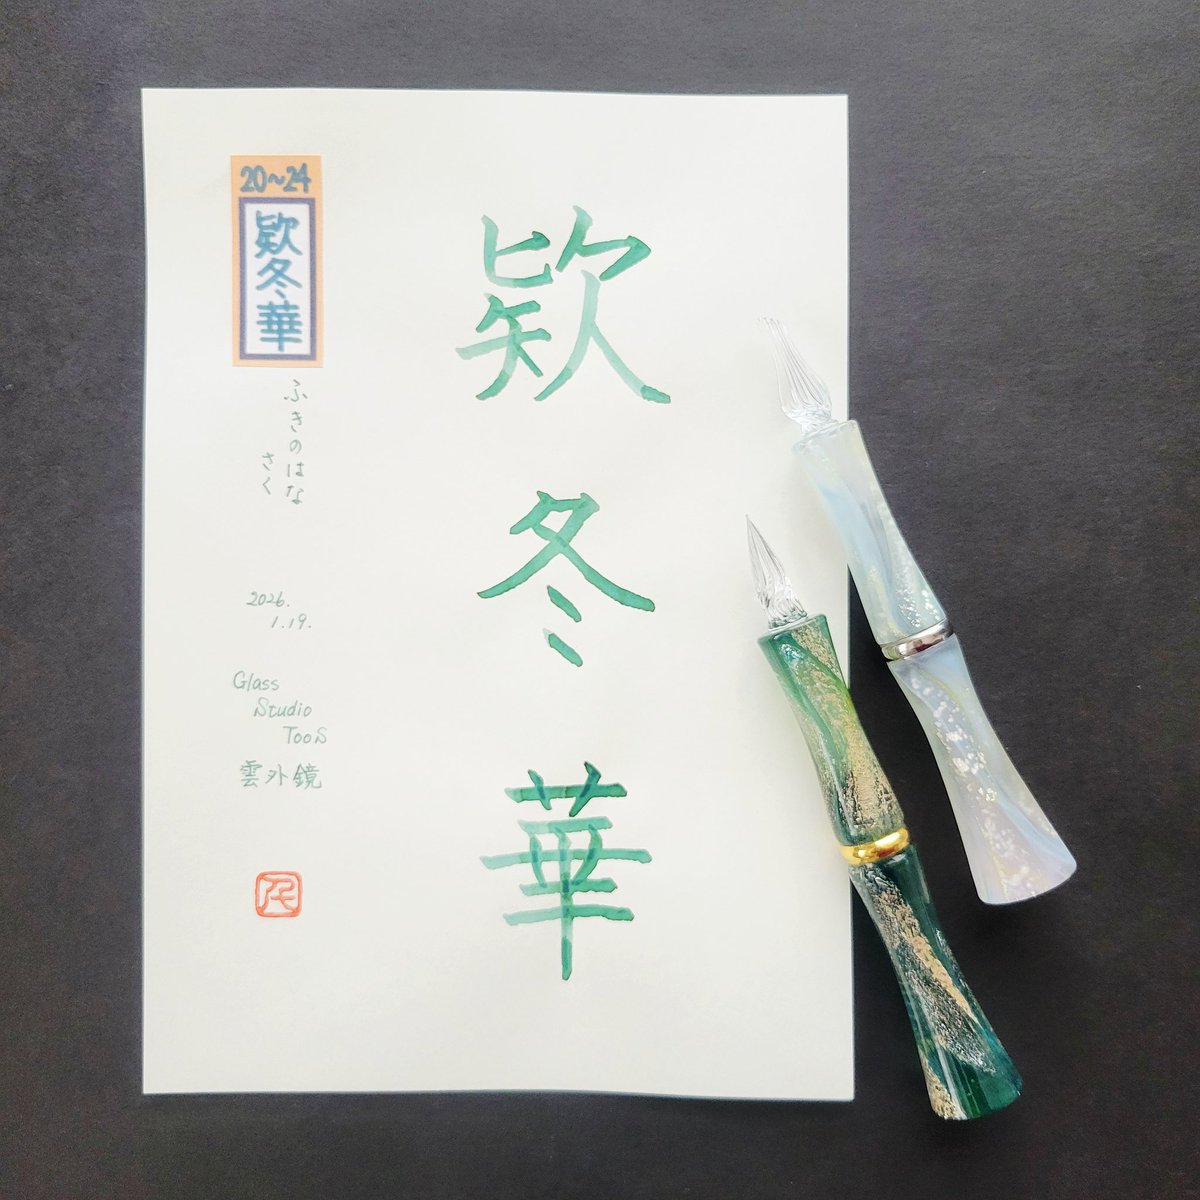 欵冬華
20~24
欵冬華
ふきのはな
さく
2026.
1.19.
Glass
Studio
TooS
雲外鏡